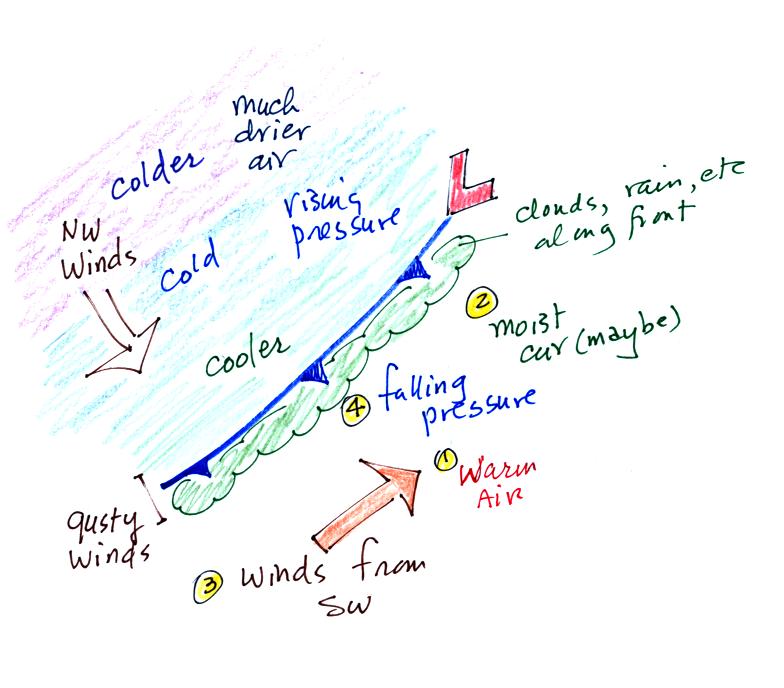 much
drier
air
colder
L
rising
pressure
clouds, rain, etc
along front
NW
Winds
cold
2
moist
air (maybe)
cooler
4 falling
pressure
1
Warm
Air
gusty
winds
3 winds from
SW